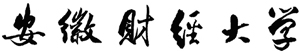 安徽财经大学